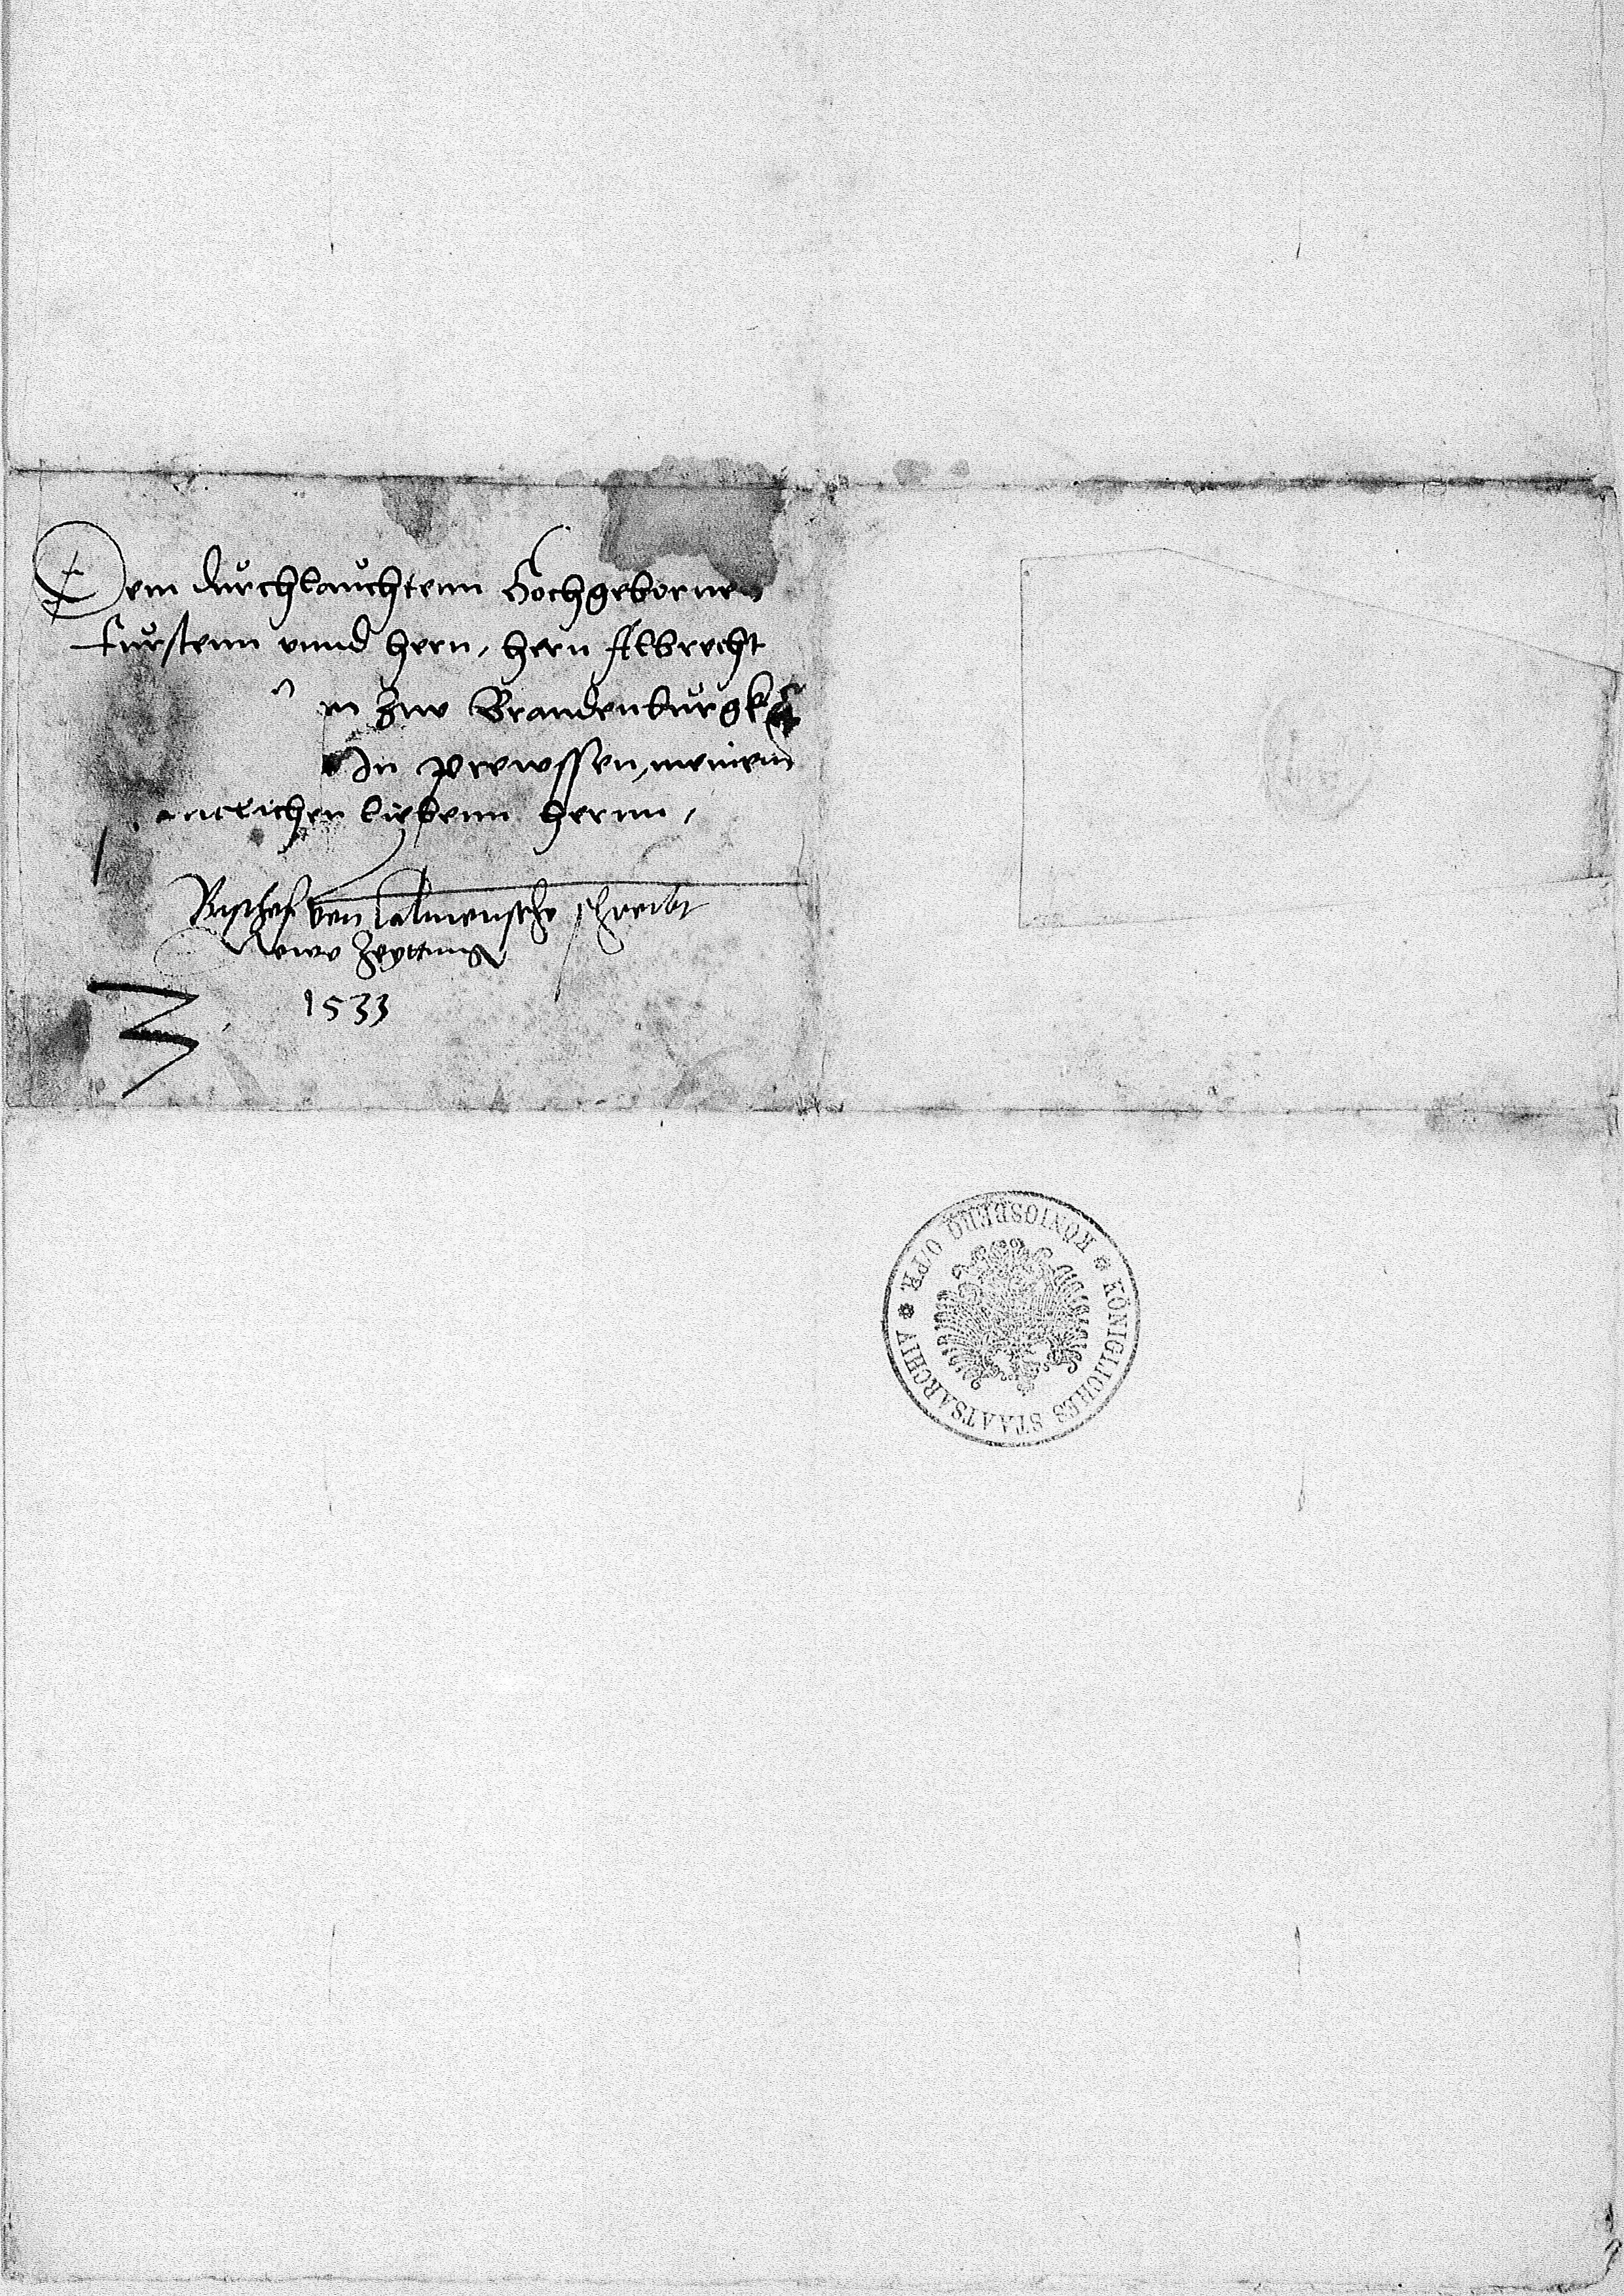 Dem durchlauchtenn Hochgebornen
furstenn vnnd hern, hern Albrecht
zuw Brandenburgk
In prewssen, meinem
liebenn hernn,
Bischof von Colmensehe schreibt
Newe Zeyttung
1533
KÖNIGLICHES STAATSARCHIV * KÖNIGSBERG O/PR. *